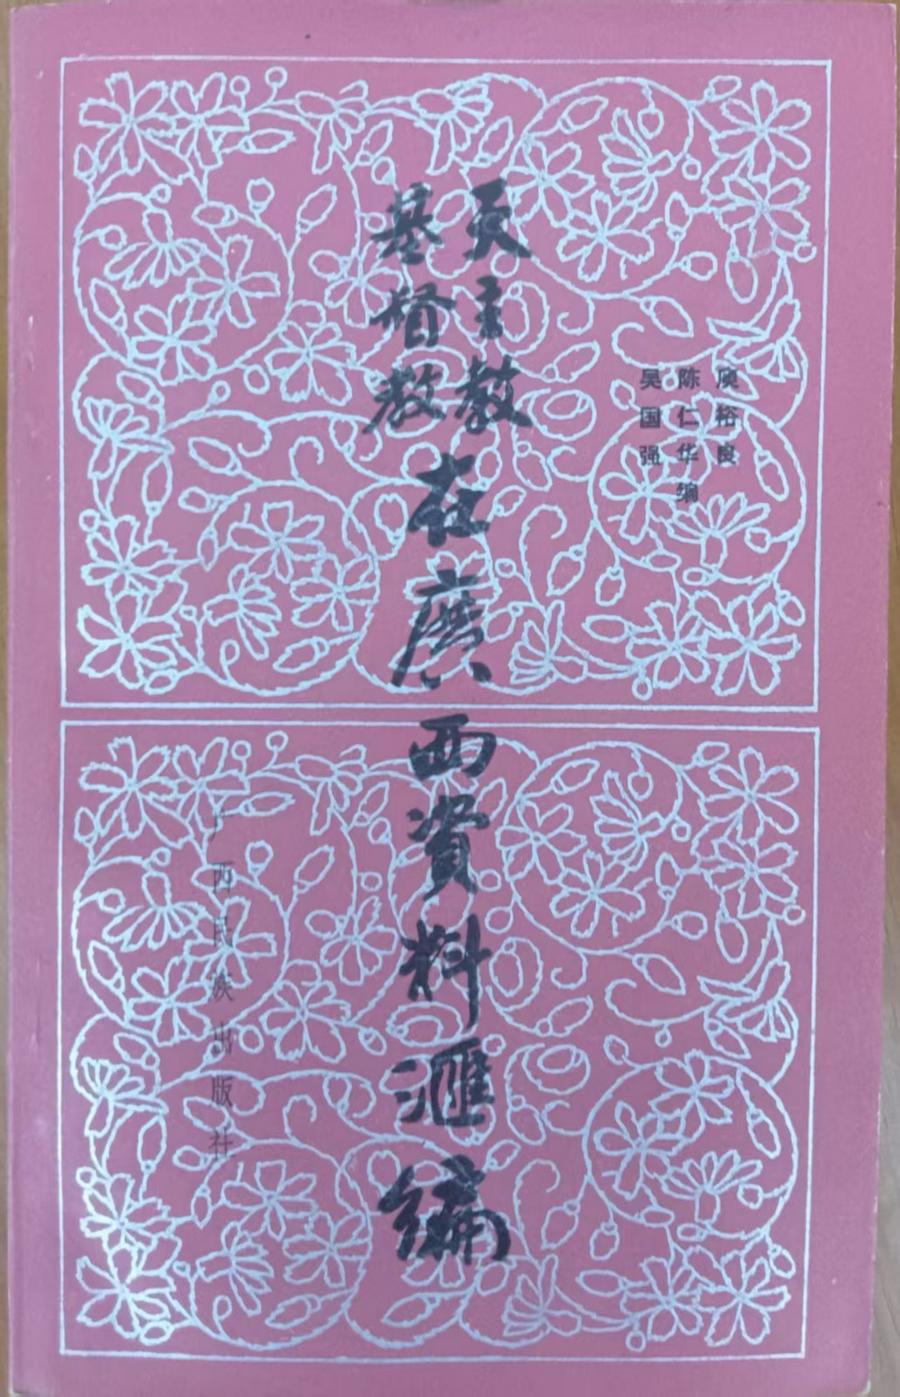 庾裕良
陈仁华编
吴国强
天主教
基督教
在廣西資料滙編
广西民族出版社